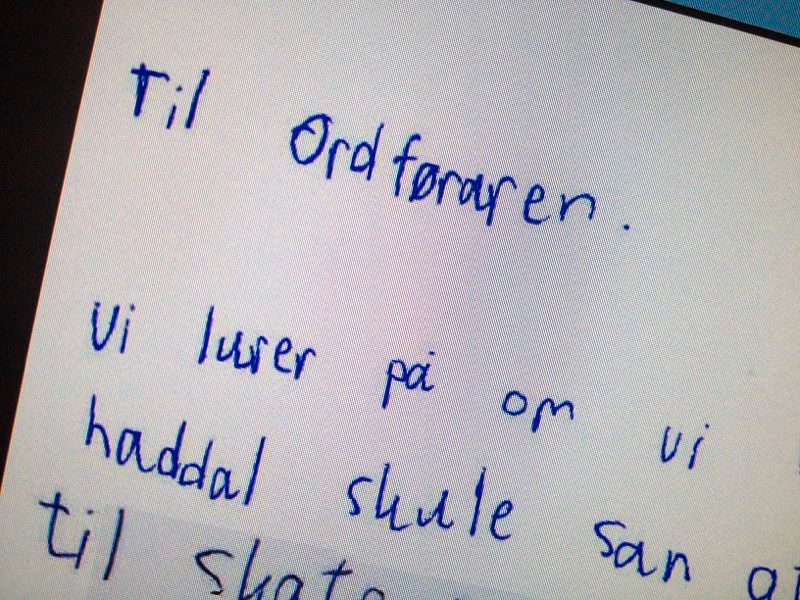 Til Ordføraren.
Vi lurer på om vi
haddal skule san
til